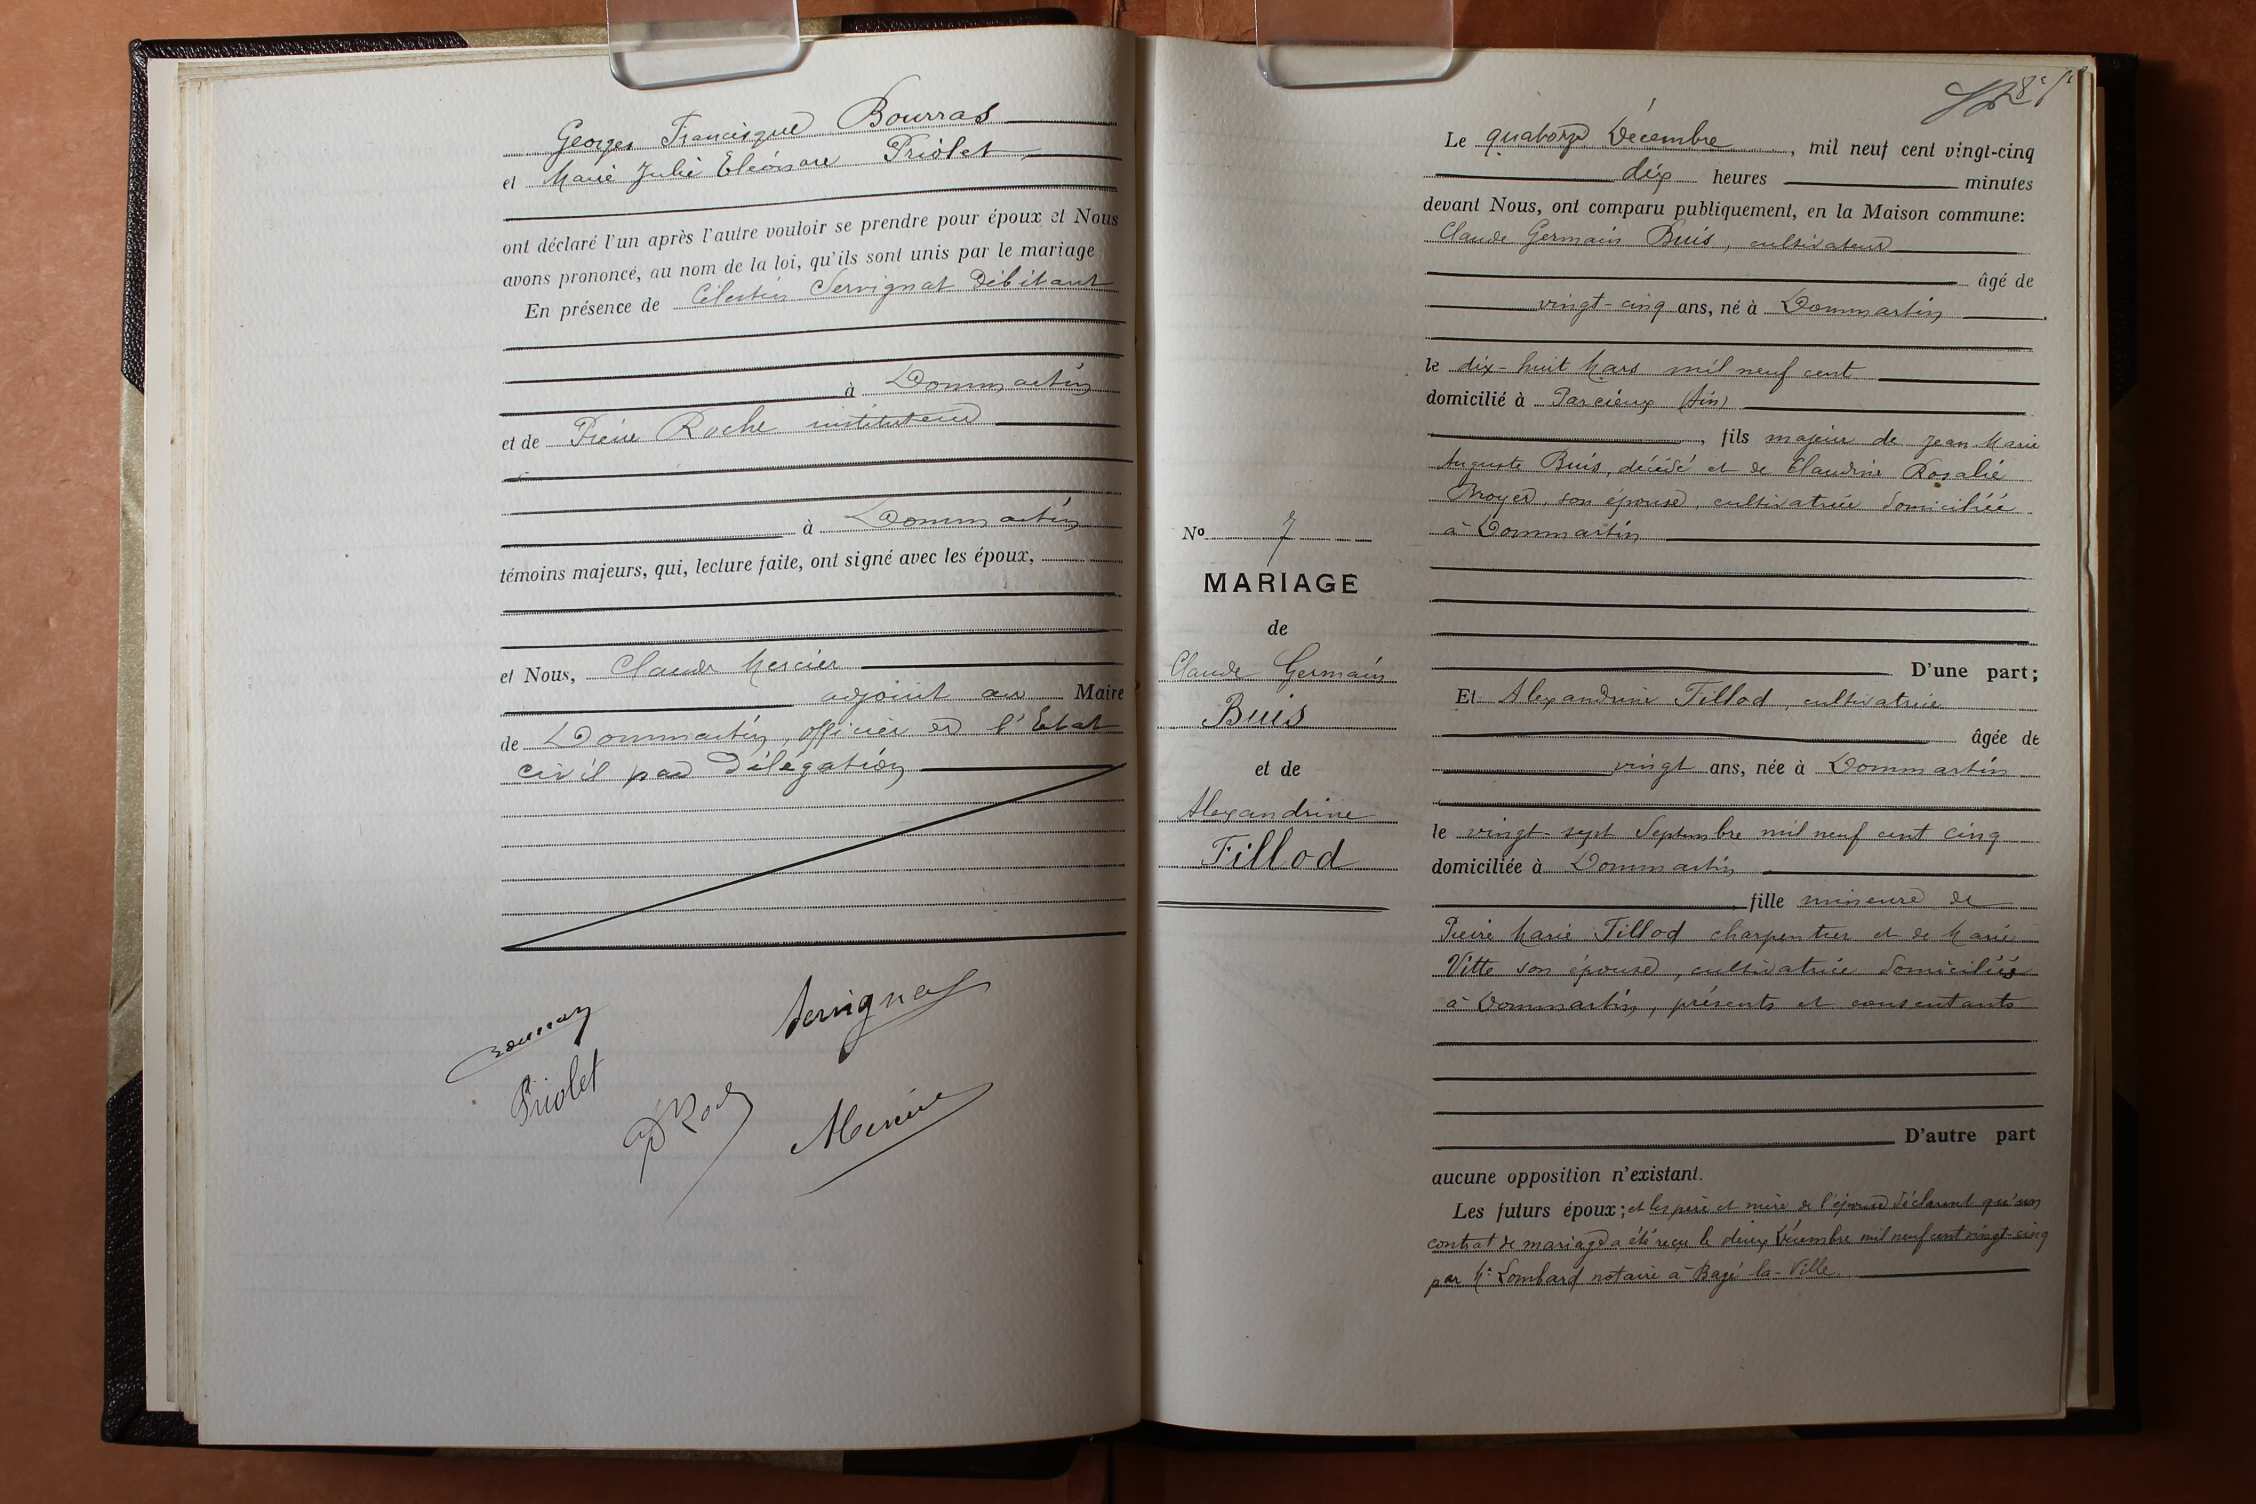 Georges Francisque Bourras
et Marie Julie Eléonore Priolet
ont déclaré l'un après l'autre vouloir se prendre pour époux et Nous
avons prononcé, au nom de la loi, qu'ils sont unis par le mariage
En présence de Célestin Servignat Débitant
à Dommartin
et de Pierre Roche instituteur
à Dommartin
témoins majeurs, qui, lecture faite, ont signé avec les époux,
et Nous, Claude Mercier
adjoint au Maire
de Dommartin, officier de l'Etat
civil par délégation
Servignat
Priolet
Mercier
N° 7
MARIAGE
de
Claude Germain
Buis
et de
Alexandrine
Fillod
Le quatorze Décembre, mil neuf cent vingt-cinq
dix heures minutes
devant Nous, ont comparu publiquement, en la Maison commune:
Claude Germain Buis, cultivateur
âgé de
vingt-cinq ans, né à Dommartin
le dix-huit Mars mil neuf cent
domicilié à Parcieux (Ain)
, fils majeur de Jean Marie
Auguste Buis, décédé et de Claudine Rosalie
Broyer, son épouse, cultivatrice domiciliée
à Dommartin
D'une part;
Et Alexandrine Fillod, cultivatrice
âgée de
vingt ans, née à Dommartin
le vingt-sept Septembre mil neuf cent cinq
domiciliée à Dommartin
fille mineure de
Pierre Marie Fillod charpentier et de Marie
Vitte son épouse, cultivatrice domiciliés
à Dommartin, présents et consentants
D'autre part
aucune opposition n'existant.
Les futurs époux; et les père et mère de l'épouse déclarent qu'un
contrat de mariage a été reçu le deux Décembre mil neuf cent vingt-cinq
par Me Lombard notaire à Bagé-la-Ville